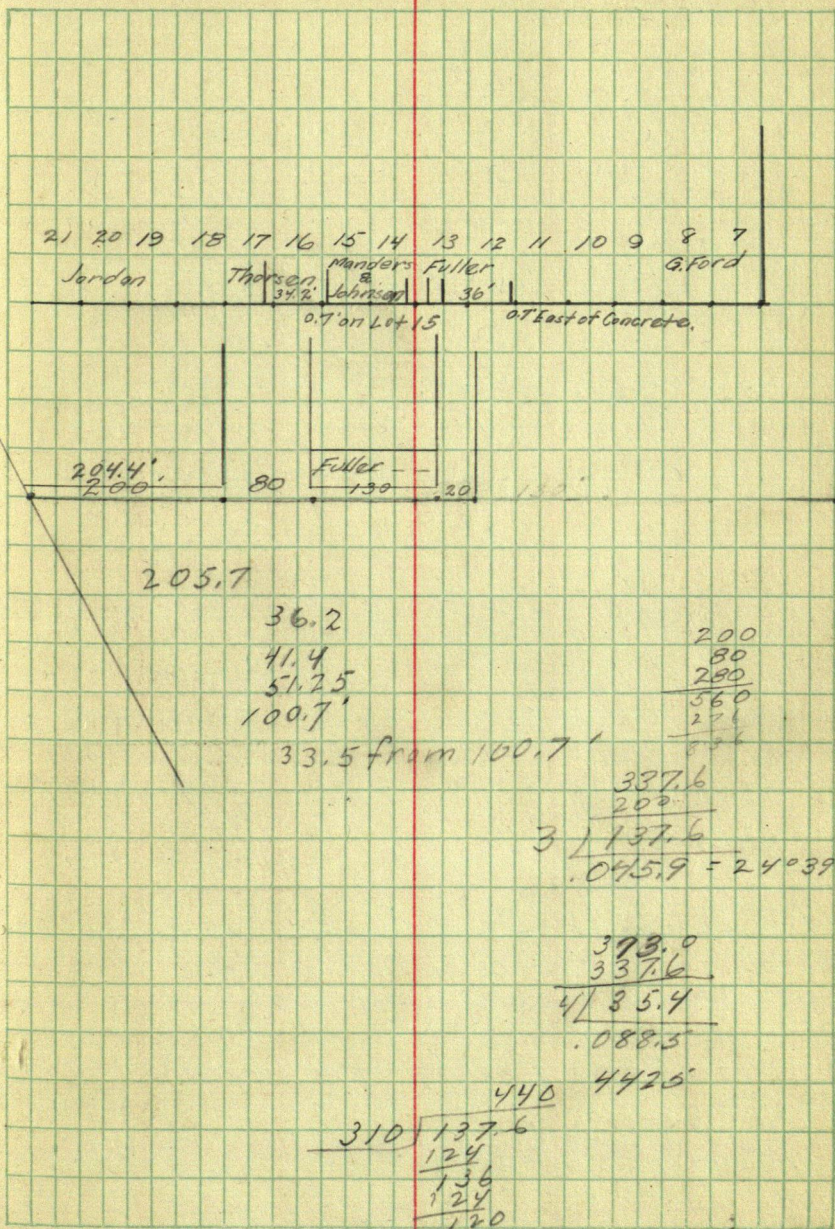 21 20 19 18 17 16 15 14 13 12 11 10 9 8 7
Jordan Thorsen Manders & Johnson Fuller G. Ford
34.2' 36'
0.7' on Lot 15 0.7 East of Concrete.
204.4'.
200 80 Fuller -- 130 20
205.7
36.2
41.4
51.25
100.7'
33.5 from 100.7'
200
80
280
560
276
836
337.6
200
3 137.6
.045.9 = 24°39
373.0
337.6
4 35.4
.088.5
4425
440
310 137.6
124
136
124
120